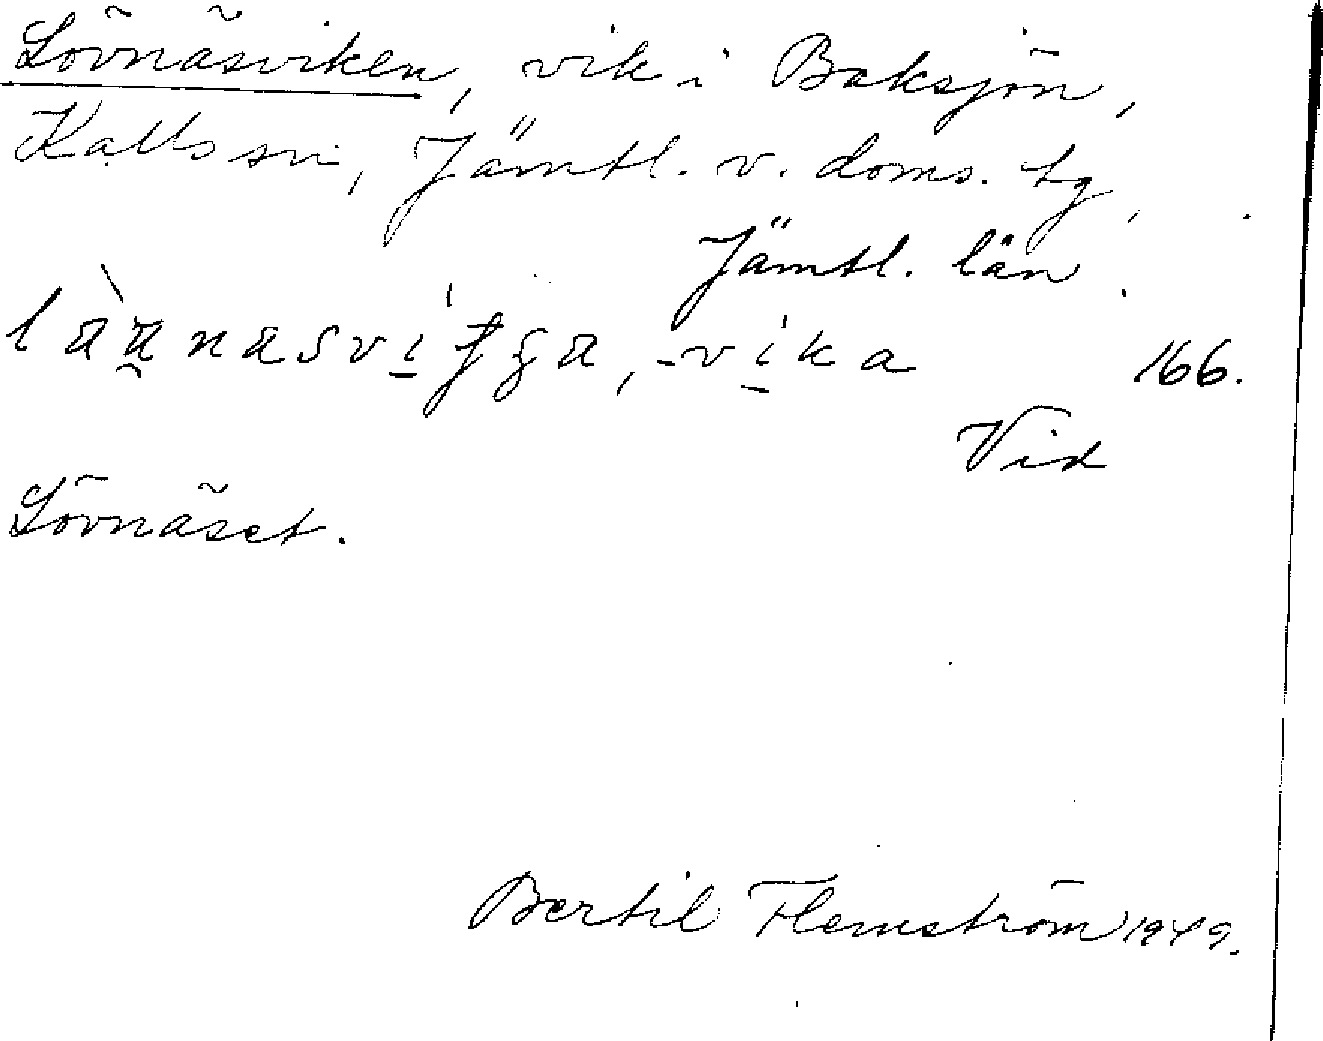 Lövnäsviken, vik i Baksjön,
Kalls sn, Jämtl. v. doms. tg,
Jämtl. län.
-vika 166.
Vid
Lövnäset.
Bertil Flemström 1949.